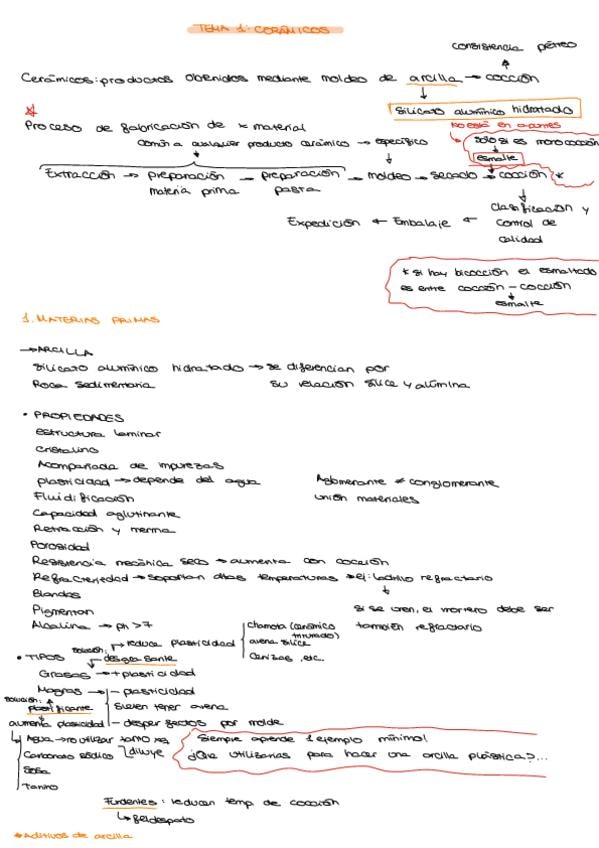 TEMA 1: CERÁMICOS
consistencia pétreo
Cerámicos: productos obtenidos mediante moldeo de arcilla → cocción
silicato alumínico hidratado
No está en apuntes
Proceso de fabricación de x material
común a cualquier producto cerámico → específico
solo si es monococción
esmalte
Extracción → preparación materia prima → preparación pasta → moldeo → secado → cocción *
Clasificación y control de calidad
Expedición ← Embalaje ←
* si hay bicocción el esmaltado
es entre cocción - cocción
esmalte
1. MATERIAS PRIMAS
→ ARCILLA
Silicato alumínico hidratado → se diferencian por
Roca sedimentaria su relación sílice y alúmina
• PROPIEDADES
estructura laminar
cristalino
Acompañada de impurezas
plasticidad → depende del agua Aglomerante ≠ conglomerante
Fluidificación unión materiales
Capacidad aglutinante
Retracción y merma
Porosidad
Resistencia mecánica seco → aumenta con cocción
Refractariedad → soportan altas temperaturas → ej: ladrillo refractario
Blandas
Pigmentan si se unen, el mortero debe ser
Alcalina → ph > 7 chamota (cerámico triturado) también refractario
solución: → reduce plasticidad arena sílice
• TIPOS desgrasante Cenizas, etc.
Grasas → + plasticidad
Magras → - plasticidad
solución: plastificante Suelen tener arena
aumenta plasticidad - desperfectos por molde
Agua → no utilizar tanto xq Siempre aprende 1 ejemplo mínimo!
Carbonato sódico diluye ¿Que utilizarias para hacer una arcilla plástica?...
Sosa
Tanino
Fundentes: reducen temp. de cocción
↳ feldespato
*Aditivos de arcilla